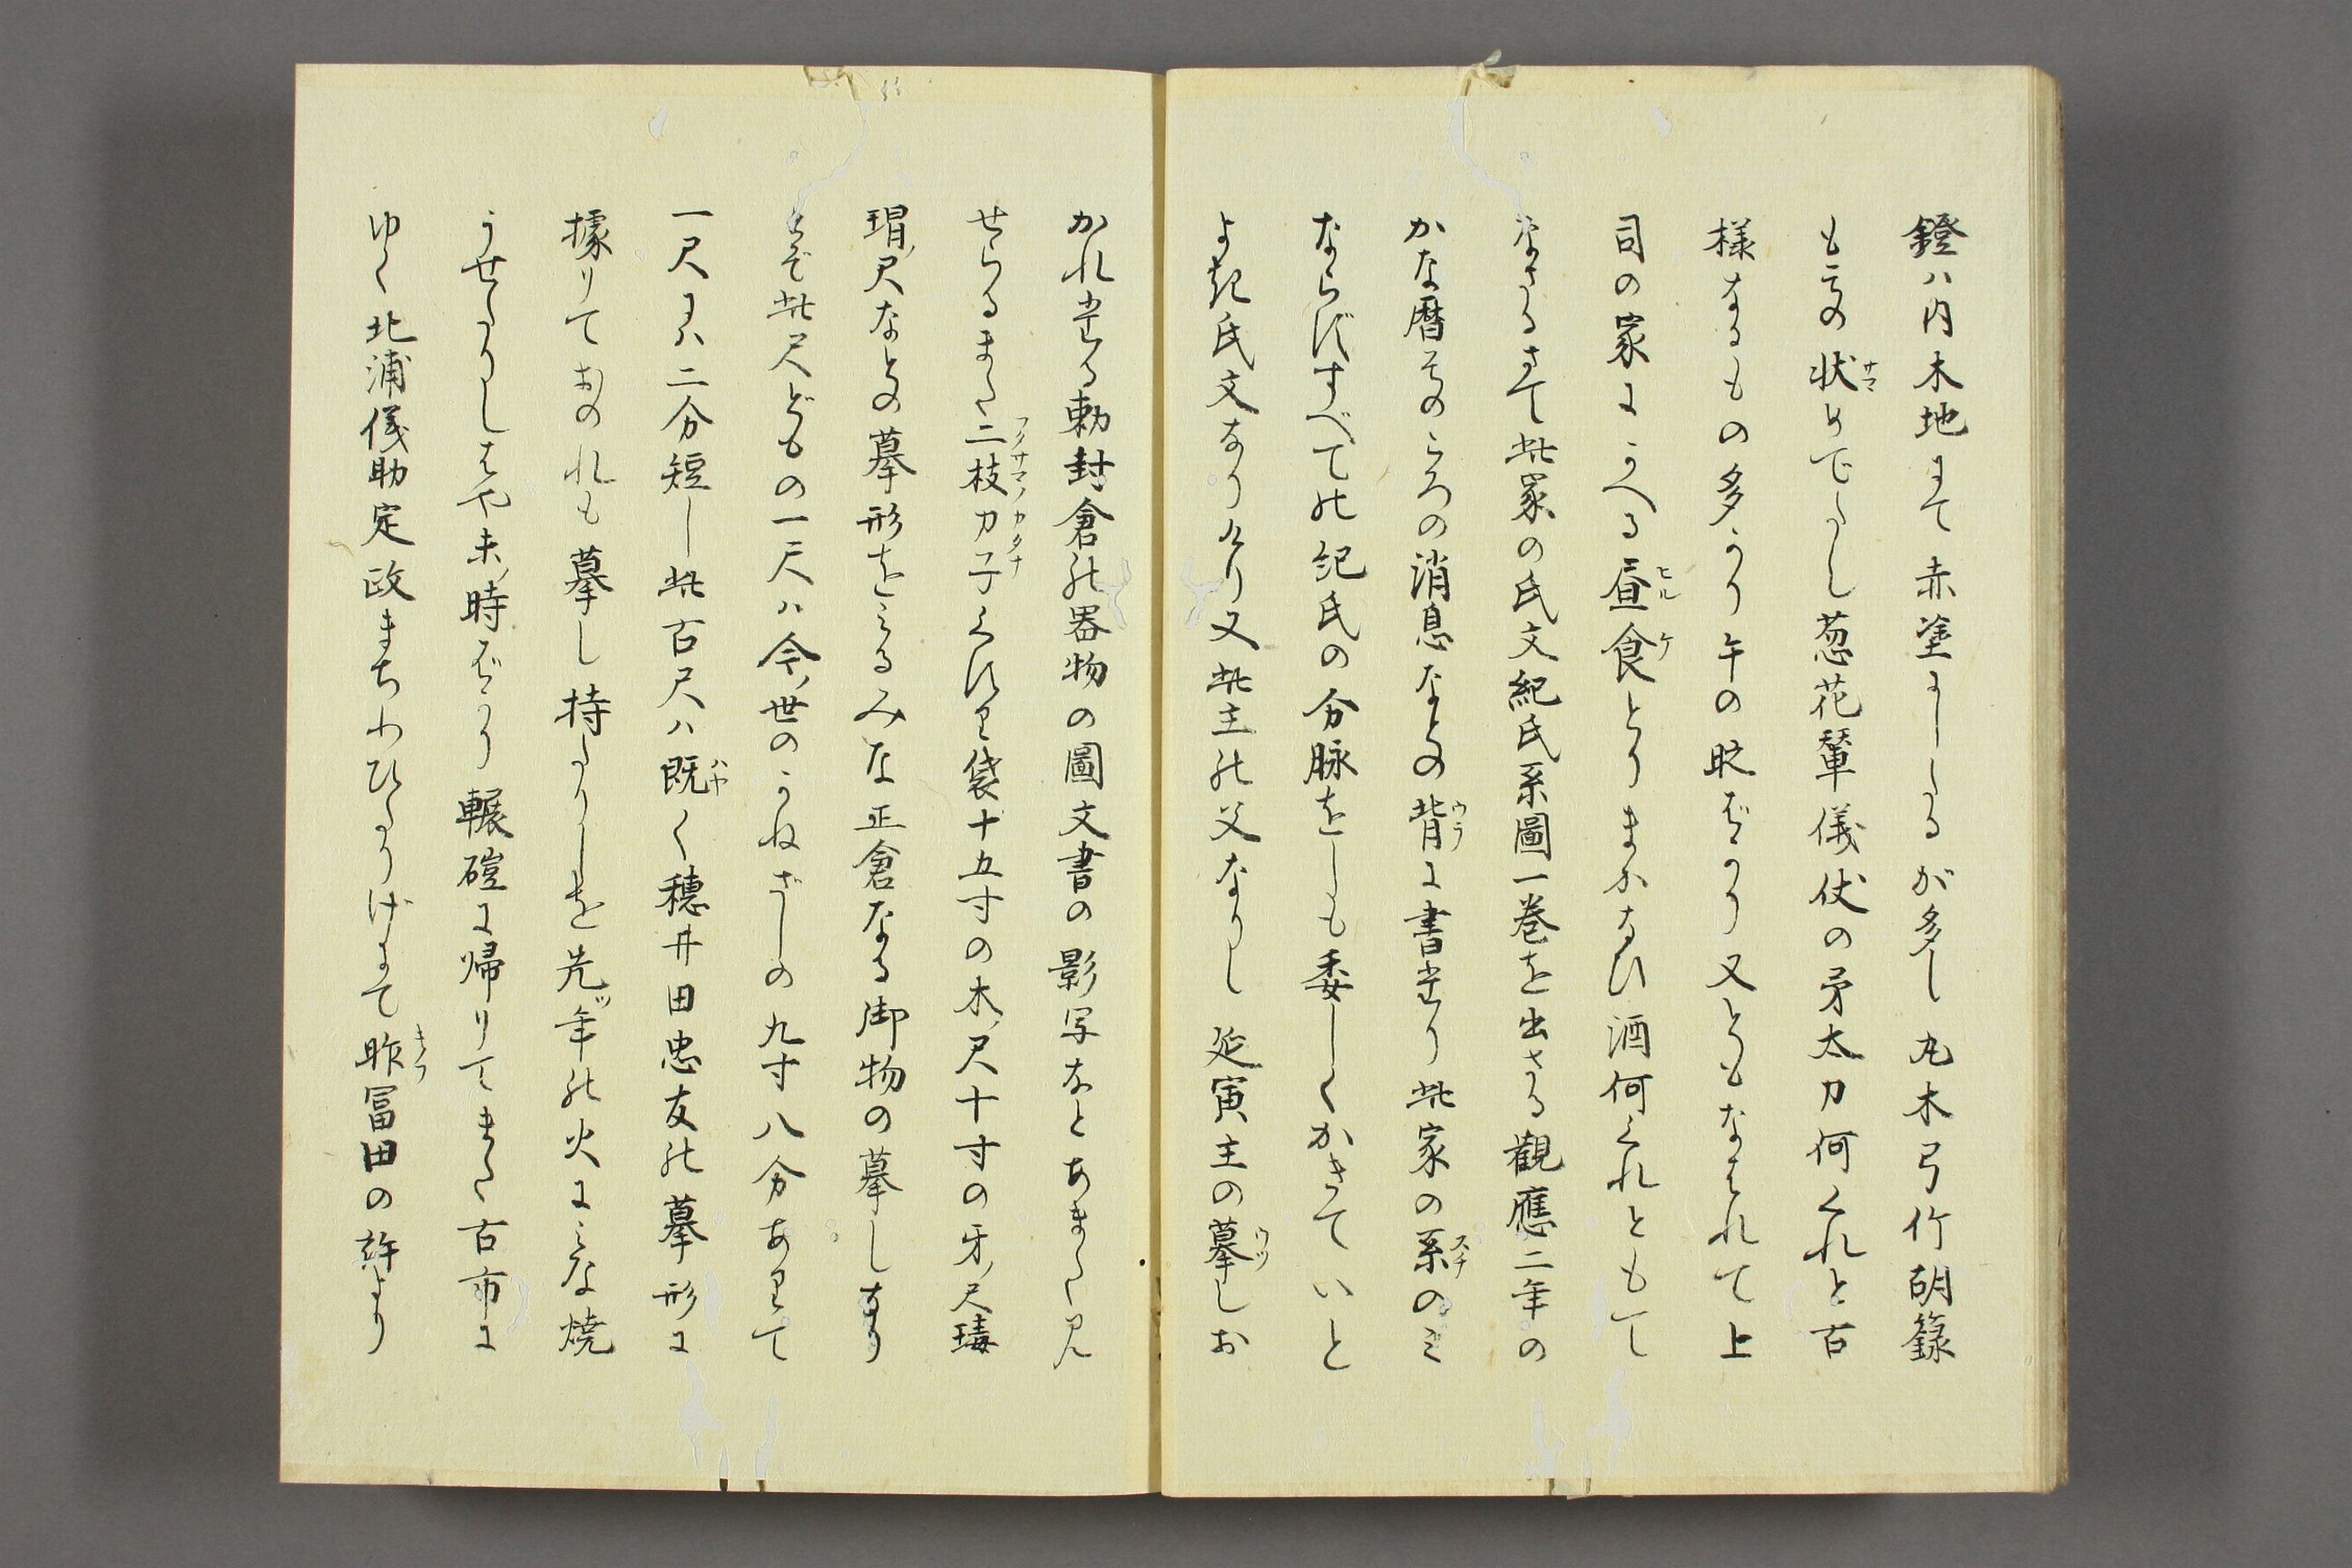 鐙ハ内木地にて赤塗にしたるが多し丸木弓竹胡籙
も言の状めでたし葱花輦儀仗の矛太刀何くれと古
様なるもの多かり午の貶ばかり又ともなはれて上
司の家にかへる昼食とりまかなひ酒何くれともて
なさるさて此冡の氏文紀氏系圖一巻を出さる觀應二年の
かな暦そのころの消息などの背に書たり此家の系のミ
ならばずべての紀氏の分脉をしも委しくかきていと
よき氏文なりけり又此主の父なりし延寅主の摹しお
かれたる勅封倉の器物の圖文書の影写なとあまた見
せらるまた二枝刀子くけりり袋十五寸の木ノ尺十寸の牙ノ尺瑇
瑁ノ尺などの摹形をミるみな正倉なる御物の摹しなり
さて此尺どもの一尺ハ今ノ世のかねざしの九寸八分ありて
一尺にハ二分短し此古尺ハ既く穂井田忠友の摹形に
據りておのれも摹し持たりしを先ツ年の火にミな焼
うせたりしはや未ノ時ばかり轆磑に帰りてまた古市に
ゆく北浦儀助定政まちわひたりげにて昨冨田の許より